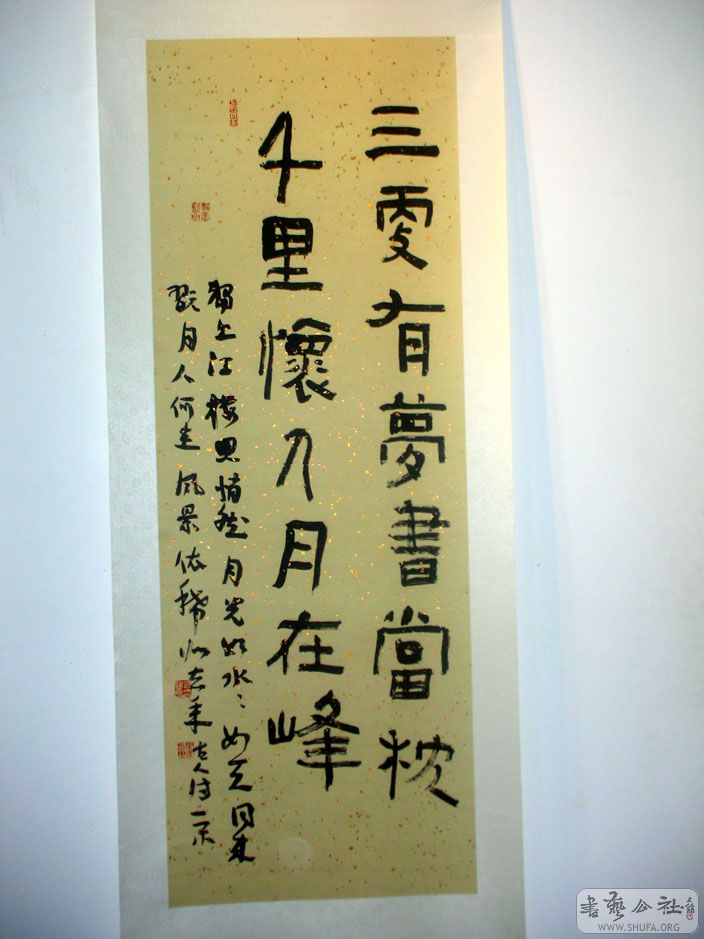 三更有夢書當枕
千里懷人月在峰
獨上江樓思悄然月光如水〻如天同來
翫月人何在風景依稀似去年古人诗
書藝公社
WWW.SHUFA.ORG